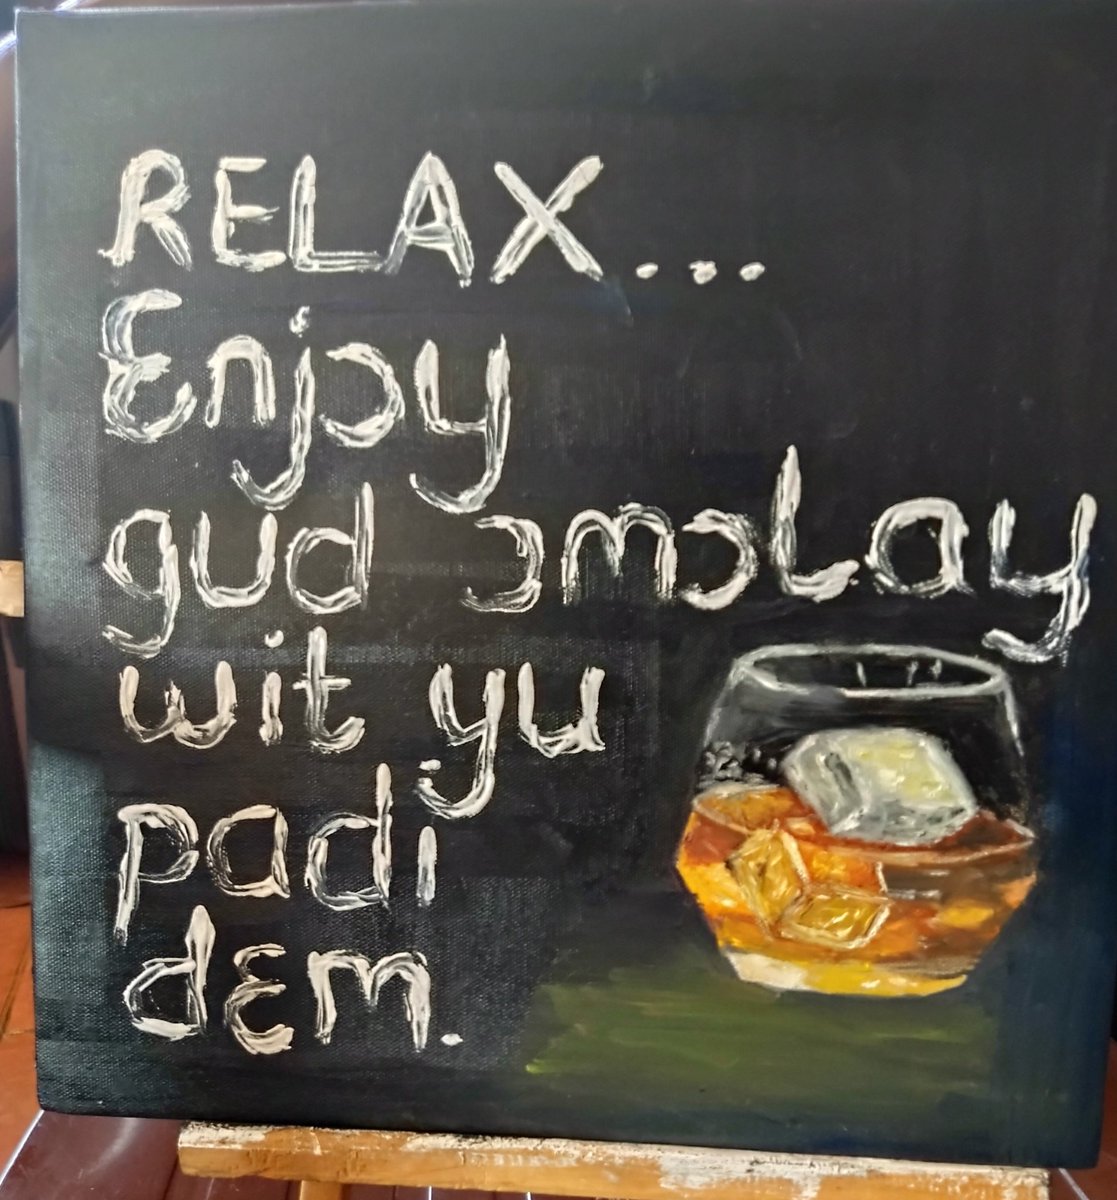 RELAX...
Ɛnjɔy
gud ɔmɔlay
wit yu
padi
dɛm.